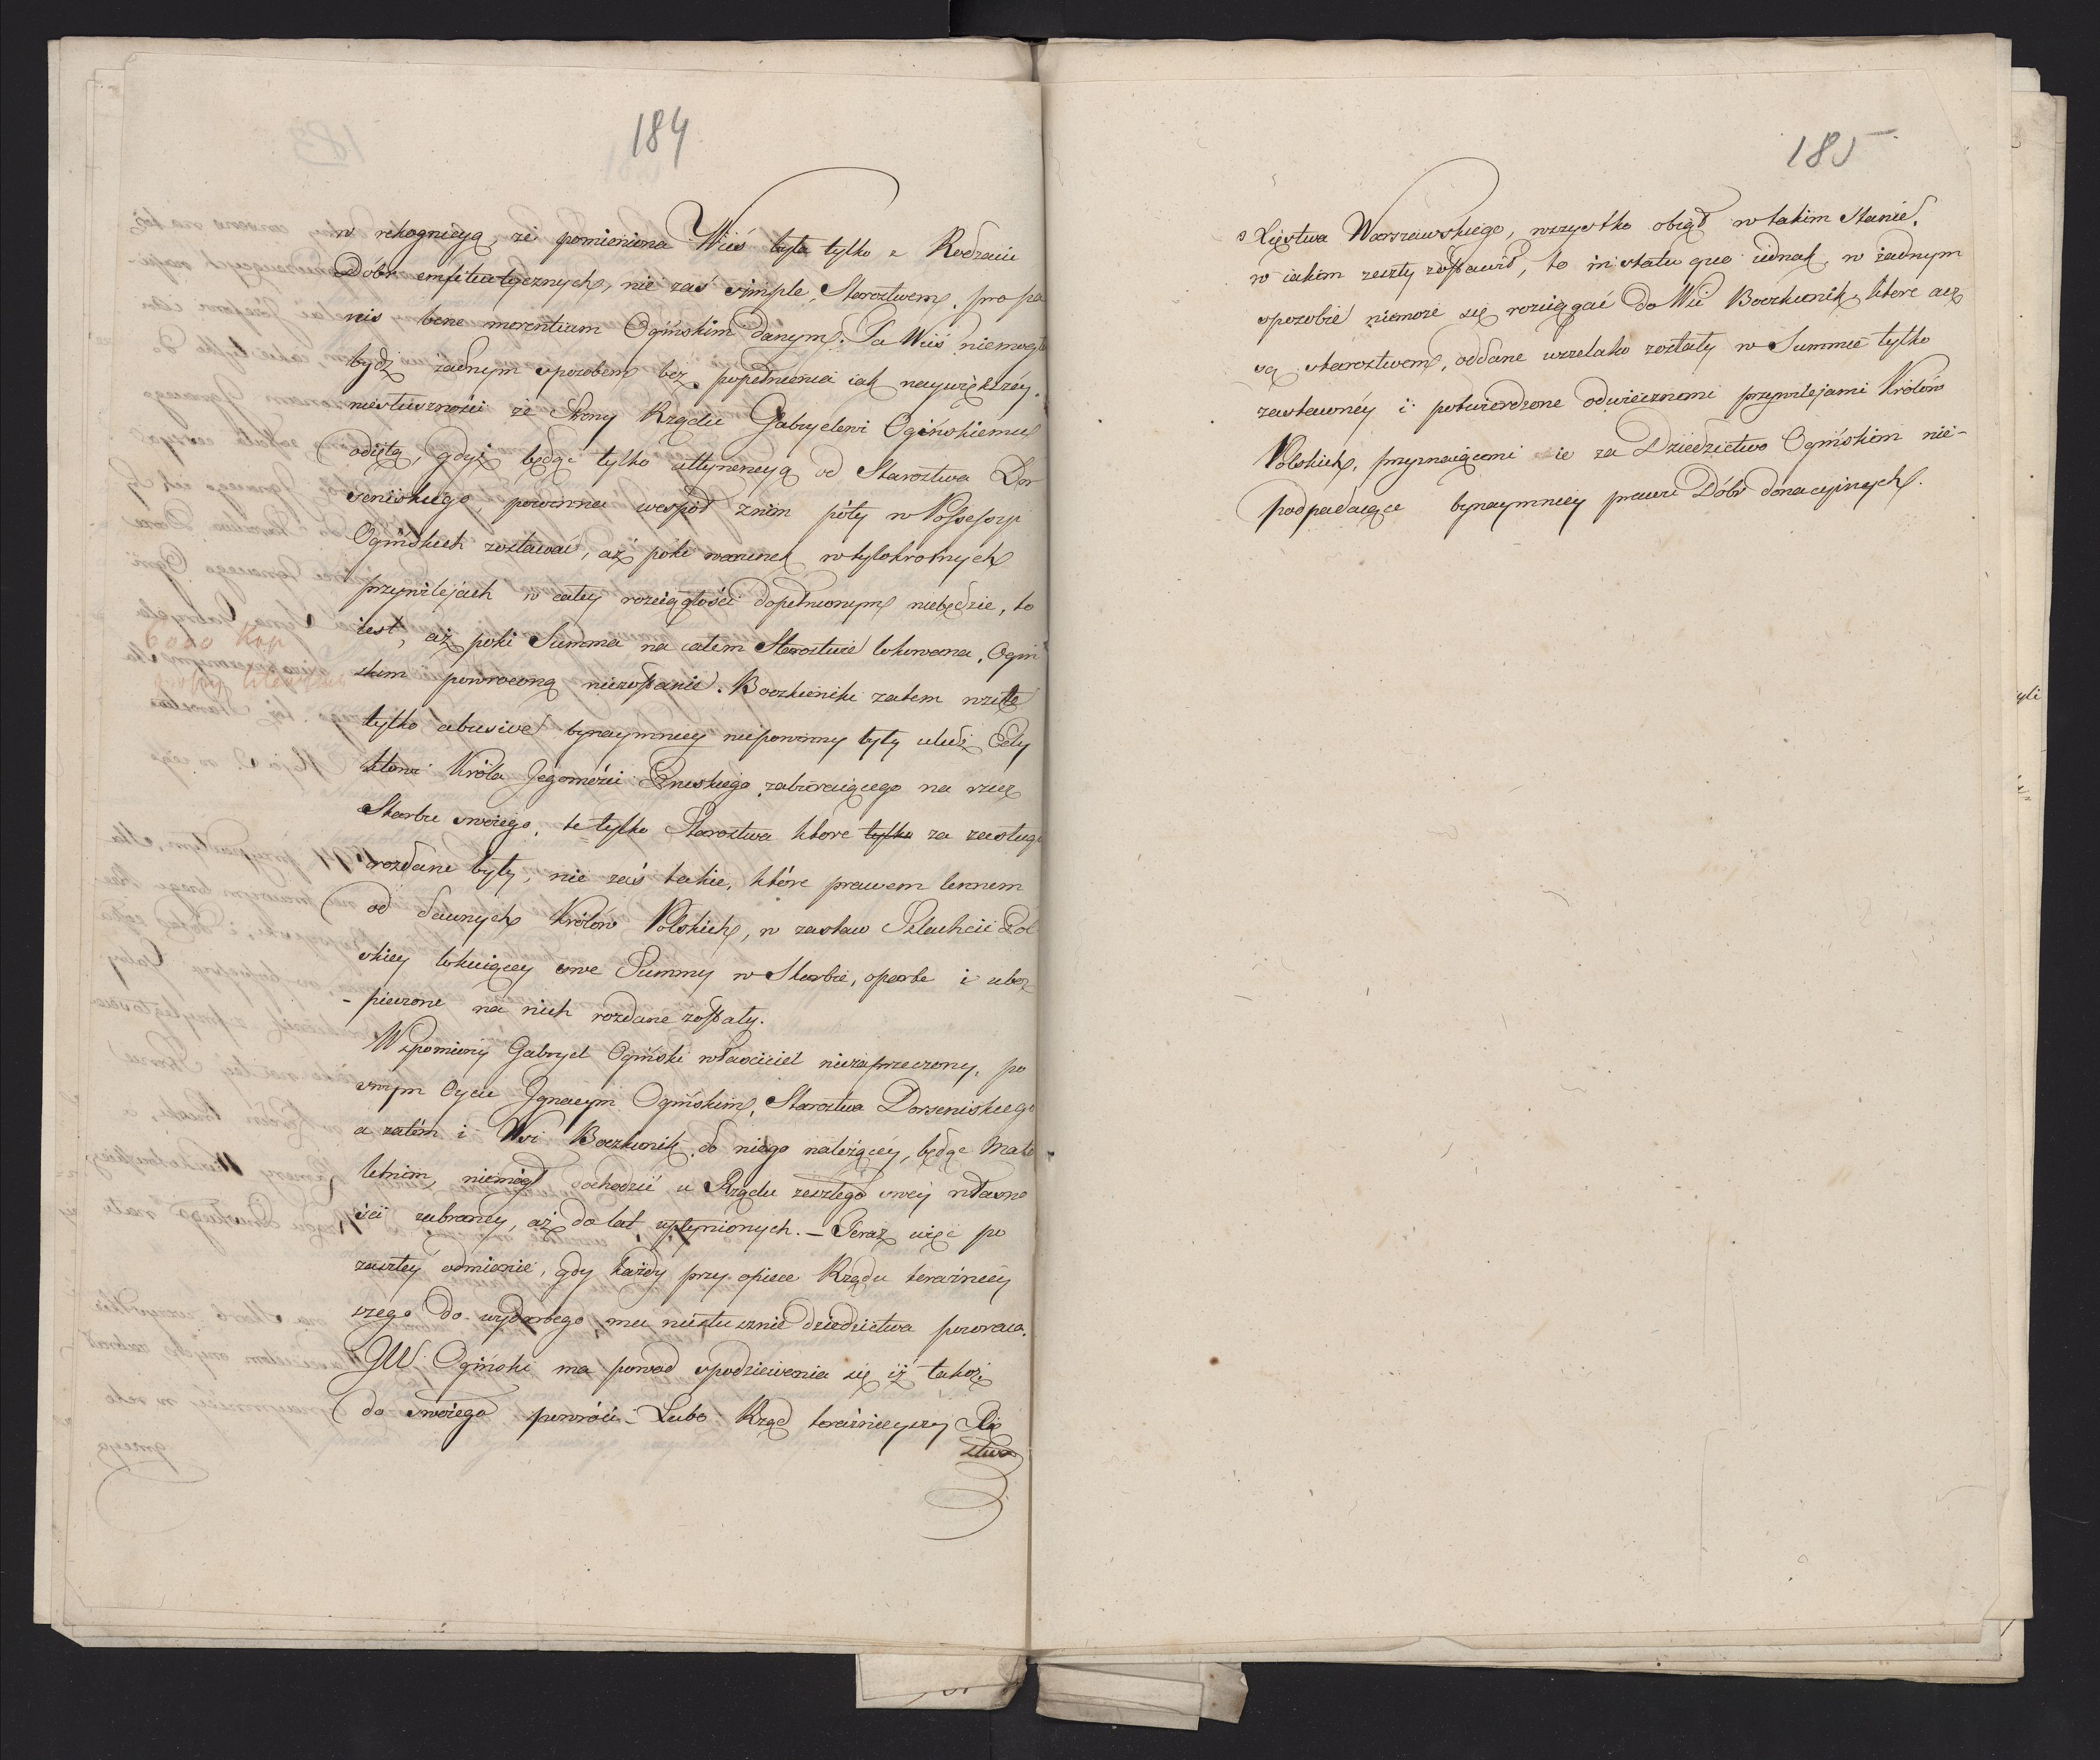 184
w rekognicyą, że pomieniona Wieś była tylko z Rodzaiu
Dóbr emfiteutycznych, nie zaś simple, Starostwem, pro pa
nis bene merentium Ogińskim danym. Ta Wieś niemogła
bydź żadnym sposobem bez popełnienia iak naywiększey
niesłuszności ze Strony Rządu Gabryelowi Ogińskiemu
odięta, gdyż będąc tylko attynencyą od Starostwa Dor
seniskiego, powinna wespoł znim póty w Possessyi
Ogińskich zostawać, aż póki warunek w tylokrotnych
przywilejach w całey rozciągłości dopełnionym niebędzie, to
iest, aż poki Summa na całem Starostwie lokowana, Ogiń
6000 Kop
groszy Litewskich
skim powroconą niezostanie. Boczkieniki zatem wzięte
tylko abusive bynaymniey niepowinny były uledz Edy
ktowi Króla Jegomości Pruskiego zabieraiącego na rzecz
Skarbu swoiego, te tylko Starostwa ktore tylko za zasługi
rozdane były, nie zaś takie, które prawem lennem
od dawnych Królów Polskich, w zastaw Szlachcie Pol
skiey lokuiącey swe Summy w Skarbie, oparte i ubez
- pieczone na nich rozdane zostały.
Wspomniony Gabryel Ogiński właściciel niezaprzeczony, po
swym Oycu Ignacym Ogińskim, Starostwa Dorseniskiego
a zatém i Wsi Boczkienik do niego należącéy, będąc Mało
letnim, niemógł dochodzić u Rządu zeszłego swey własno
ści zabraney, aż do lat upłynionych. – Teraz więc po
zaszłey odmienie, gdy każdy przy opiece Rządu teraźniey
szego do wydartego mu niesłusznie dziedzictwa powraca.
JW. Ogiński ma powod spodziewania się iż także
do swoiego powróci. Lubo Rząd teraźnieyszy Xię
stwa
185
Xięstwa Warszawskiego, wszystko obiął w takim Stanie,
w iakim zeszły zostawił, to in statu quo iednak, w żadnym
sposobie niemoże się rozciągać do Wsi Boczkienik, ktore acz
są starostwem, oddane wszelako zostały w Summie tylko
zastawnéy i potwierdzone odwiecznemi przywilejami Królów
Polskich, przyznaiącemi ie za Dziedzictwo Ogińskim nie-
podpadaiące bynaymniey prawu Dóbr donacyinych.